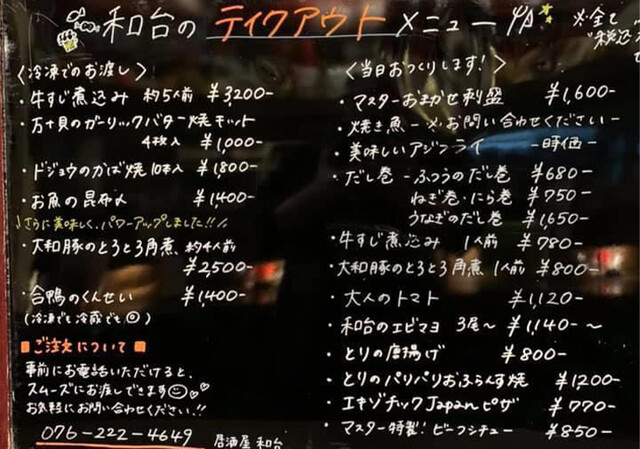 和台の テイクアウト メニュー
※全て
"税込
〈冷凍でのお渡し〉
・牛すじ煮込み 約5人前 ¥3,200-
・万十貝のガーリックバター焼キット
4枚入 ¥1,000-
・ドジョウのかば焼 10本入 ¥1,800-
・お魚の昆布〆 ¥1400-
さらに美味しく、パワーアップしました!!
・大和豚のとろとろ角煮 約4人前
¥2,500-
・合鴨のくんせい ¥1,400-
(冷凍でも冷蔵でも◎)
■ご注文について■
事前にお電話いただけると、
スムーズにお渡しできます
お気軽にお問い合わせください!!
076-222-4649 居酒屋 和台
〈当日おつくりします!〉
・マスターおまかせ刺盛 ¥1,600-
・焼き魚 -※お問い合わせください-
・美味しいアジフライ -時価-
・だし巻 -ふつうのだし巻 ¥680-
ねぎ巻・にら巻 ¥750-
うなぎのだし巻 ¥1,650-
・牛すじ煮込み 1人前 ¥780-
・大和豚のとろとろ角煮 1人前 ¥800-
・大人のトマト ¥1,120-
・和台のエビマヨ 3尾〜 ¥1,140-〜
・とりの唐揚げ ¥800-
・とりのパリパリおふらんす焼 ¥1200-
・エキゾチックJapanピザ ¥770-
・マスター特製!ビーフシチュー ¥850-